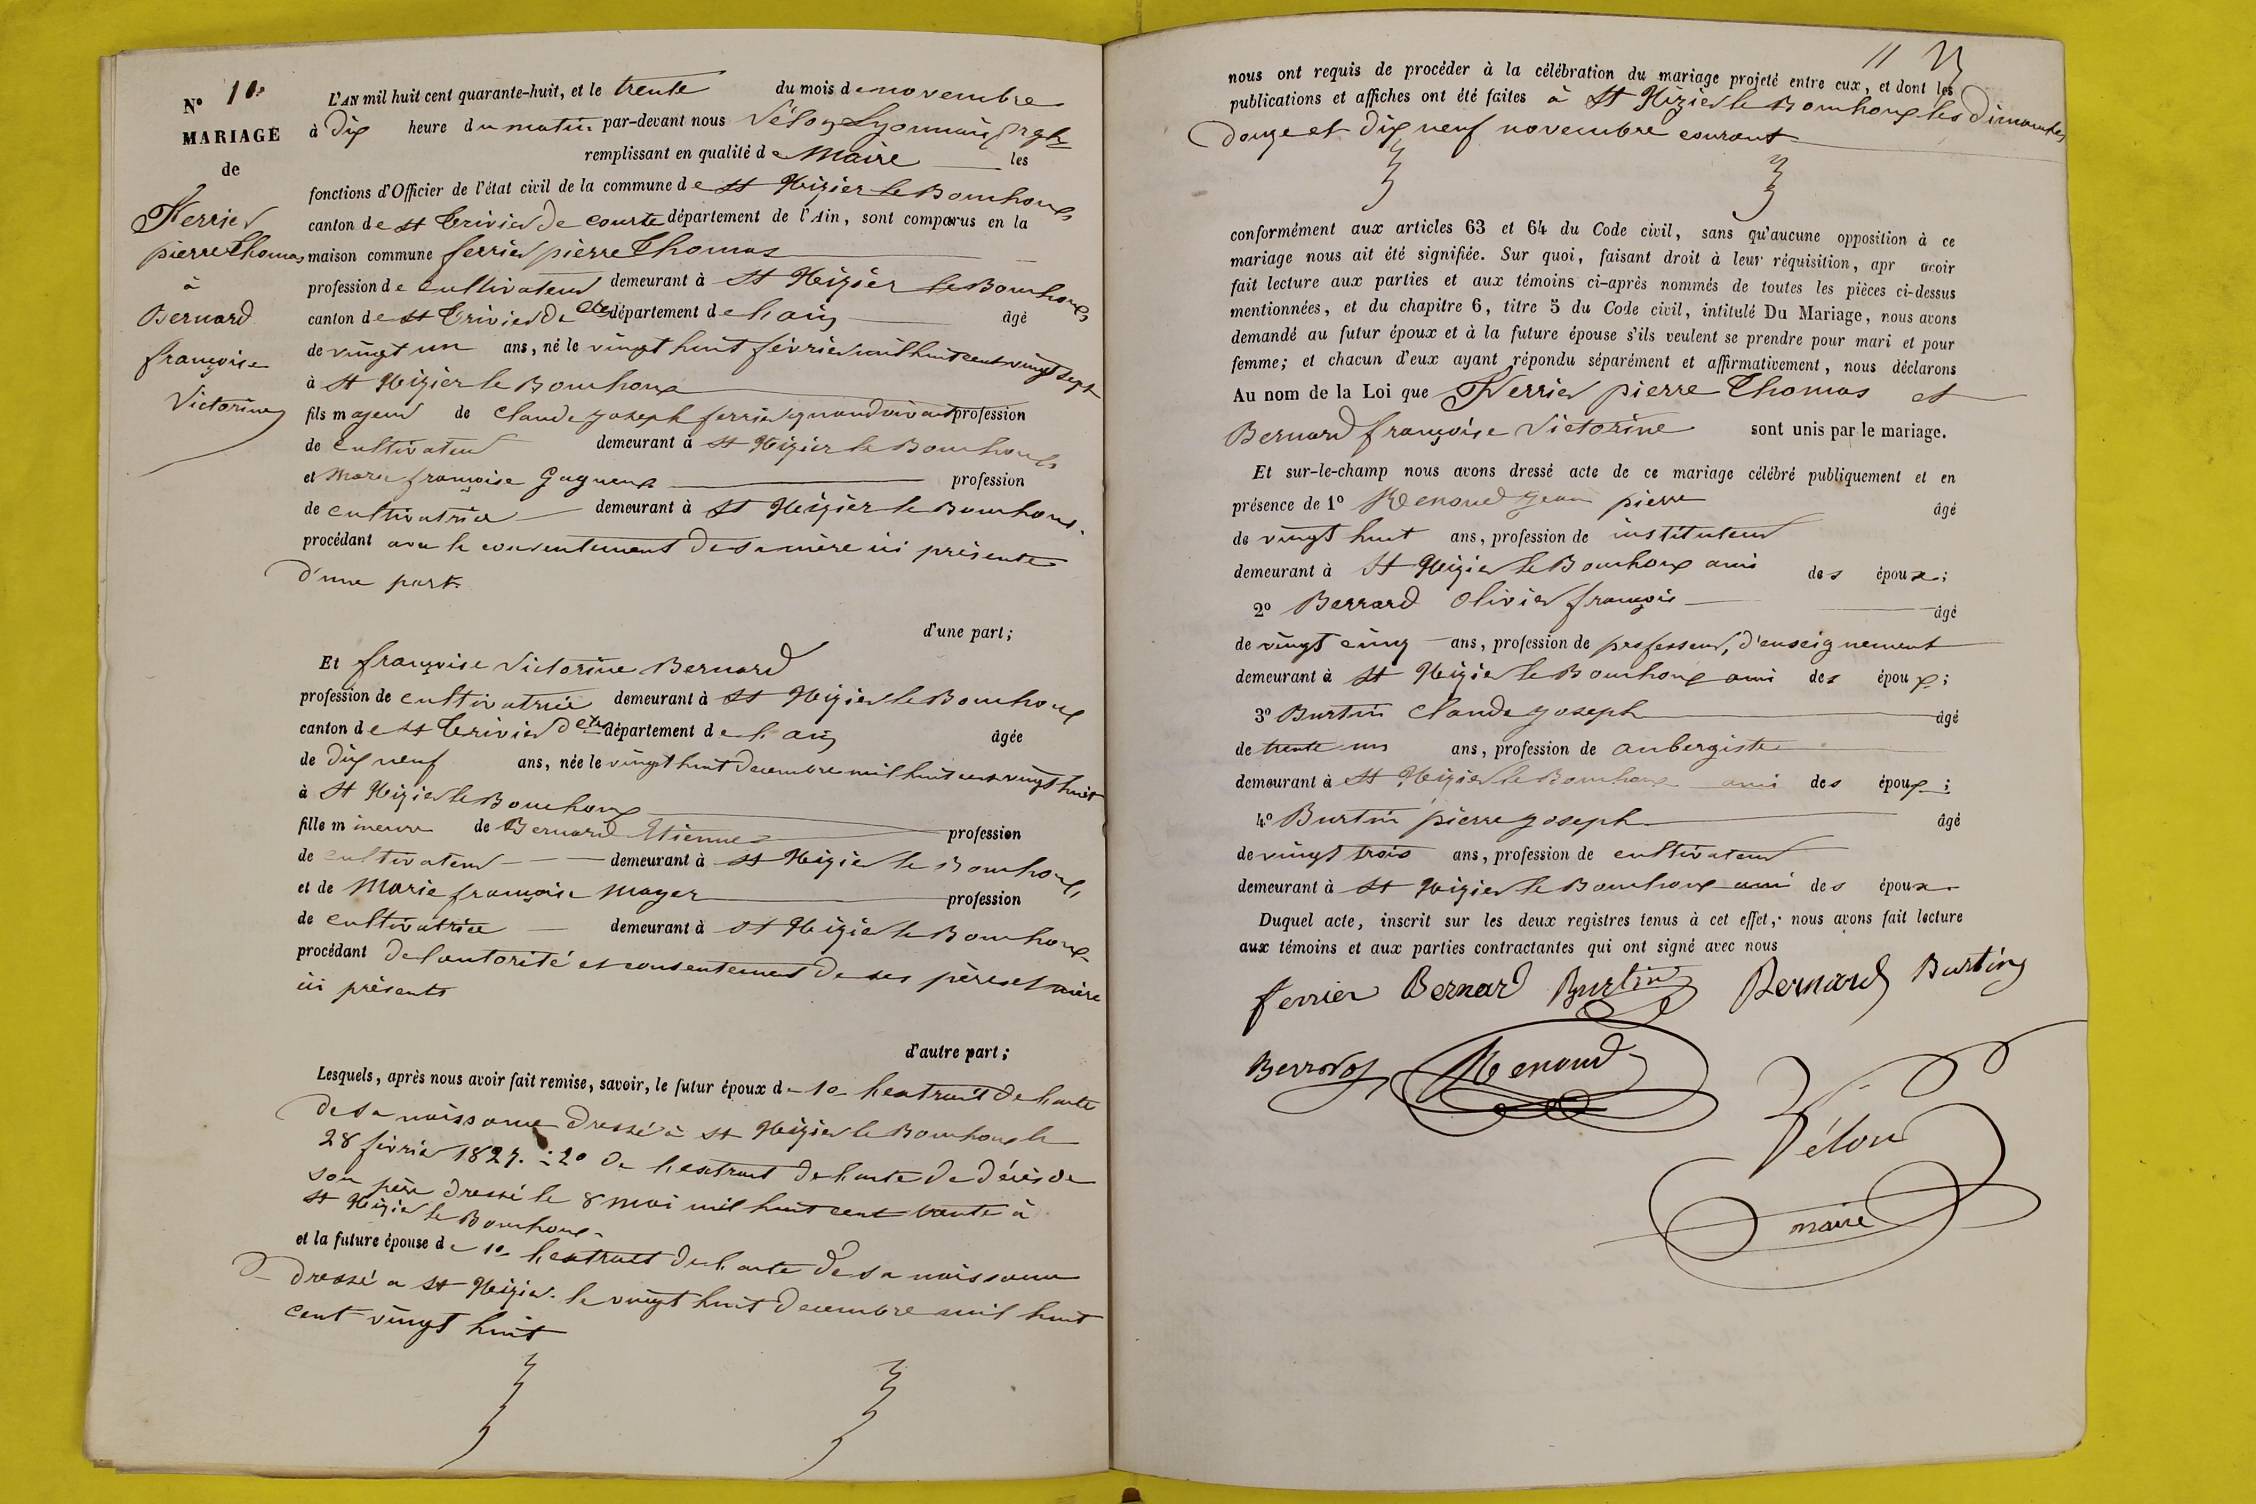 N° 10
MARIAGE
de
Ferrier
pierre Thomas
à
Bernard
françoise
Victorine
L'AN mil huit cent quarante-huit, et le trente du mois de novembre
à dix heure du matin par-devant nous Vélon Lyonnais
remplissant en qualité de Maire les
fonctions d'Officier de l'état civil de la commune de St Nizier le Bouchoux
canton de St Trivier de courte département de l'Ain, sont comparus en la
maison commune ferrier pierre Thomas
profession de cultivateur demeurant à St Nizier le Bouchoux
canton de St Trivier de Ctes département de l'ain âgé
de vingt un ans, né le vingt huit février mil huit cent vingt sept
à St Nizier le Bouchoux
fils majeur de Claude joseph ferrier quand vivait profession
de cultivateur demeurant à St Nizier le Bouchoux
et Marie françoise Guyneux profession
de cultivatrice demeurant à St Nizier le Bouchoux
procédant avec le consentement de sa mère ici présente
d'une part.
d'une part;
Et françoise Victorine Bernard
profession de cultivatrice demeurant à St Nizier le Bouchoux
canton de St Trivier de Ctes département de l'ain âgée
de dix neuf ans, née le vingt huit decembre mil huit cent vingt huit
à St Nizier le Bouchoux
fille mineure de Bernard Etienne profession
de cultivateur demeurant à St Nizier le Bouchoux
et de Marie françoise Mayer profession
de cultivatrice demeurant à St Nizier le Bouchoux
procédant de l'autorité et consentement de ses père et mère
ici présents
d'autre part;
Lesquels, après nous avoir fait remise, savoir, le futur époux de 1o l'extrait de l'acte
de sa naissance dressé à St Nizier le Bouchoux le
28 février 1827. 2o de l'extrait de l'acte de décès de
son père dressé le 8 mai mil huit cent trente à
St Nizier le Bouchoux
et la future épouse de 1o l'extrait de l'acte de sa naissance
dressé a St Nizier le vingt huit decembre mil huit
cent vingt huit
11
nous ont requis de procéder à la célébration du mariage projeté entre eux, et dont les
publications et affiches ont été faites à St Nizier le Bouchoux les Dimanches
douze et dix neuf novembre courant
conformément aux articles 63 et 64 du Code civil, sans qu'aucune opposition à ce
mariage nous ait été signifiée. Sur quoi, faisant droit à leur réquisition, apr avoir
fait lecture aux parties et aux témoins ci-après nommés de toutes les pièces ci-dessus
mentionnées, et du chapitre 6, titre 5 du Code civil, intitulé Du Mariage, nous avons
demandé au futur époux et à la future épouse s'ils veulent se prendre pour mari et pour
femme; et chacun d'eux ayant répondu séparément et affirmativement, nous déclarons
Au nom de la Loi que Ferrier pierre Thomas et
Bernard françoise Victorine sont unis par le mariage.
Et sur-le-champ nous avons dressé acte de ce mariage célébré publiquement et en
présence de 1° Renoud jean pierre âgé
de vingt huit ans, profession de instituteur
demeurant à St Nizier le Bouchoux ami des époux;
2° Berrard Olivier françois âgé
de vingt cinq ans, profession de professeur d'enseignement
demeurant à St Nizier le Bouchoux ami des époux;
3° Burtin Claude joseph âgé
de trente un ans, profession de aubergiste
demeurant à St Nizier le Bouchoux ami des époux;
4° Burtin pierre joseph âgé
de vingt trois ans, profession de cultivateur
demeurant à St Nizier le Bouchoux ami des époux
Duquel acte, inscrit sur les deux registres tenus à cet effet, nous avons fait lecture
aux témoins et aux parties contractantes qui ont signé avec nous
ferrier Bernard Burtin Bernard Burtin
Berrard Renoud
Vélon
maire